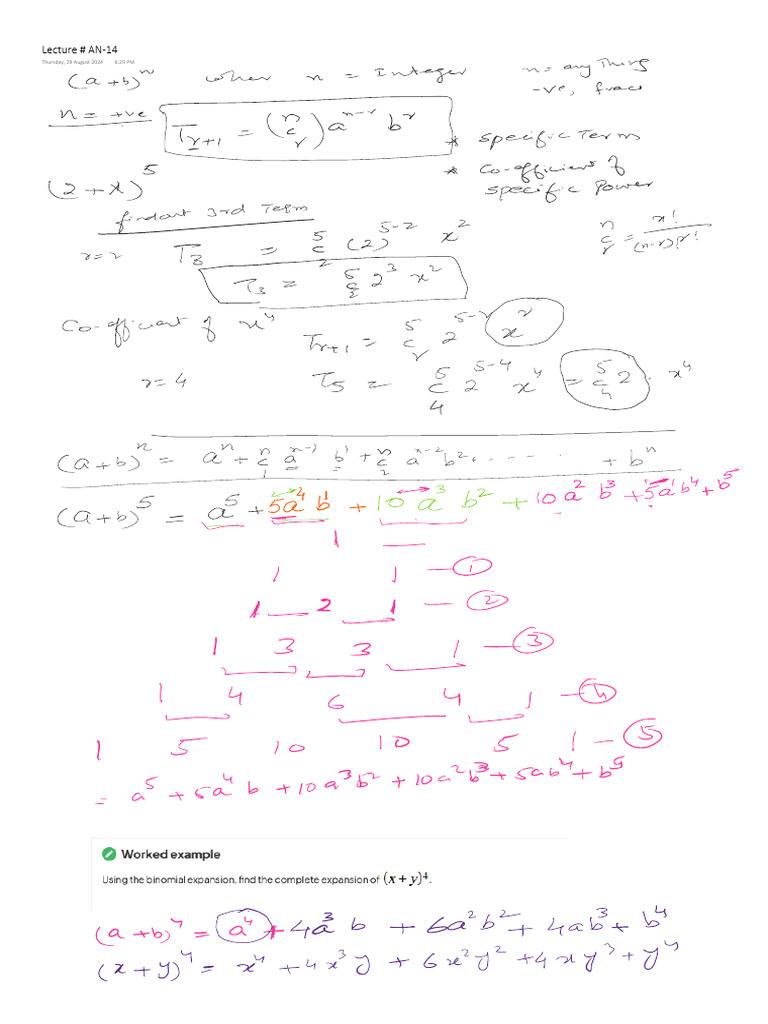 Lecture # AN-14
Thursday, 29 August 2024 6:29 PM
(a+b)^n when n = Integer n = any thing
-ve, frac
n = +ve T_{r+1} = (n c r) a^{n-r} b^r
* specific Term
* Co-efficient of specific Power
(2+x)^5
findout 3rd Term
r=2 T_3 = 5 c 2 (2)^{5-2} x^2
n c r = x! / (n-r)! r!
T_3 = 5 c 2 2^3 x^2
Co-efficient of x^4 T_{r+1} = 5 c r 2^{5-r} x^r
r=4 T_5 = 5 c 4 2^{5-4} x^4 = 5 c 4 2 . x^4
(a+b)^n = a^n + n c 1 a^{n-1} b^1 + n c 2 a^{n-2} b^2 . . . . . . . . + b^n
(a+b)^5 = a^5 + 5a^4 b^1 + 10 a^3 b^2 + 10 a^2 b^3 + 5a^1 b^4 + b^5
1
1 1 — ①
1 2 1 — ②
1 3 3 1 — ③
1 4 6 4 1 — ④
1 5 10 10 5 1 — ⑤
= a^5 + 5a^4 b + 10a^3 b^2 + 10a^2 b^3 + 5ab^4 + b^5
Worked example
Using the binomial expansion, find the complete expansion of (x + y)^4.
(a+b)^4 = a^4 + 4a^3 b + 6a^2 b^2 + 4ab^3 + b^4
(x+y)^4 = x^4 + 4x^3 y + 6x^2 y^2 + 4xy^3 + y^4